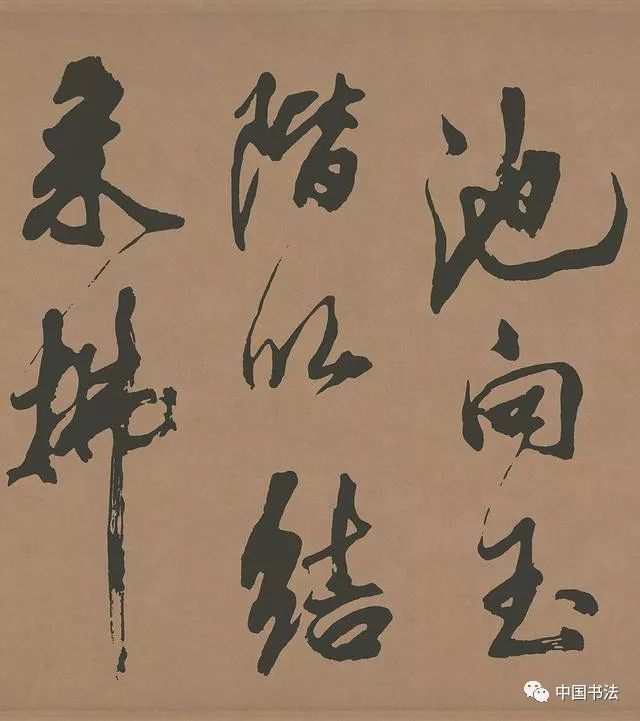 池向玉
階結
拂
中国书法